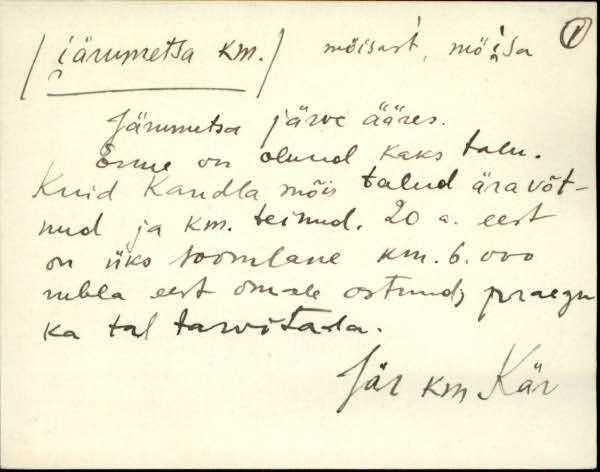 / i̯ärumetsa km. / mõisast, mõisa 1
Järumetsa järve ääres.
Enne on olnud kaks talu.
Kuid Kandla mõis talud äravõt-
nud ja km. teinud. 20 a. eest
on üks soomlane km. 6.000
rubla eest omale ostnud; praegu
ka tal tarvitada.
Jär km Kär